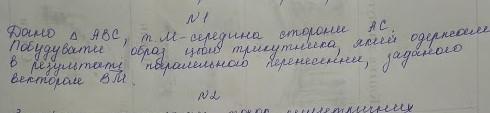 №1
Дано Δ ABC, т. М-середина сторони АС.
Побудувати образ цього трикутника, який одержали
в результаті паралельного перенесення, заданого
вектором ВМ.
№2